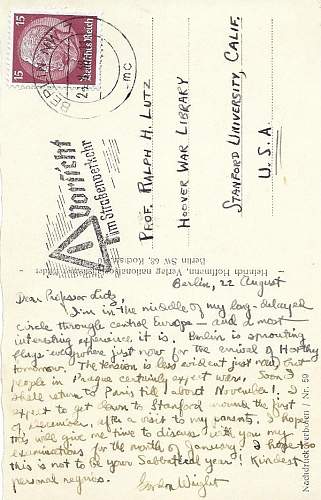 15
15
Deutsches Reich
BERLIN NW
m c
Vorsicht
im Straßenverkehr
PROF. RALPH H. LUTZ
HOOVER WAR LIBRARY
STANFORD UNIVERSITY, CALIF.
U.S.A.
Heinrich Hoffmann, Verlag
Berlin SW 68, Kochstr.
Nachdruck verboten
Berlin, 22 August
Dear Professor Lutz,
I'm in the middle of my long-delayed
circle through central Europe – and a most
interesting experience it is. Berlin is sprouting
flags everywhere just now for the arrival of Horthy
tomorrow. The tension is less evident just now, but
people in Prague certainly expect war. Soon I
shall return to Paris till about November 1. I
expect to get down to Stanford around the first
of December, after a visit to my parents. I hope
this will give me time to discuss with you my
examinations for the month of January. I hope too
this is not to be your Sabbatical year! Kindest
personal regards.
Gordon Wright